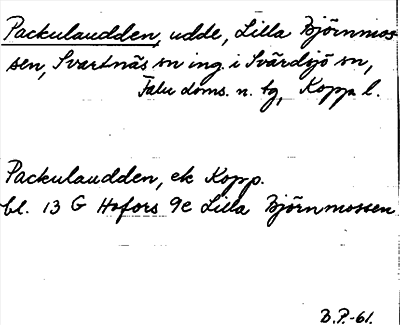 Packulaudden, udde, Lilla Björnmos-
sen, Svartnäs sn ing. i Svärdsjö sn,
Falu doms. n. tg, Kopp l.
Packulaudden, ek Kopp.
bl. 13 G Hofors 9e Lilla Björnmossen
B.P.-61.